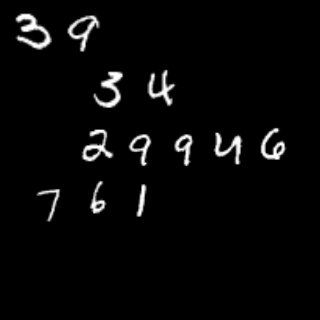 3 9
3 4
2 9 9 4 6
7 6 1